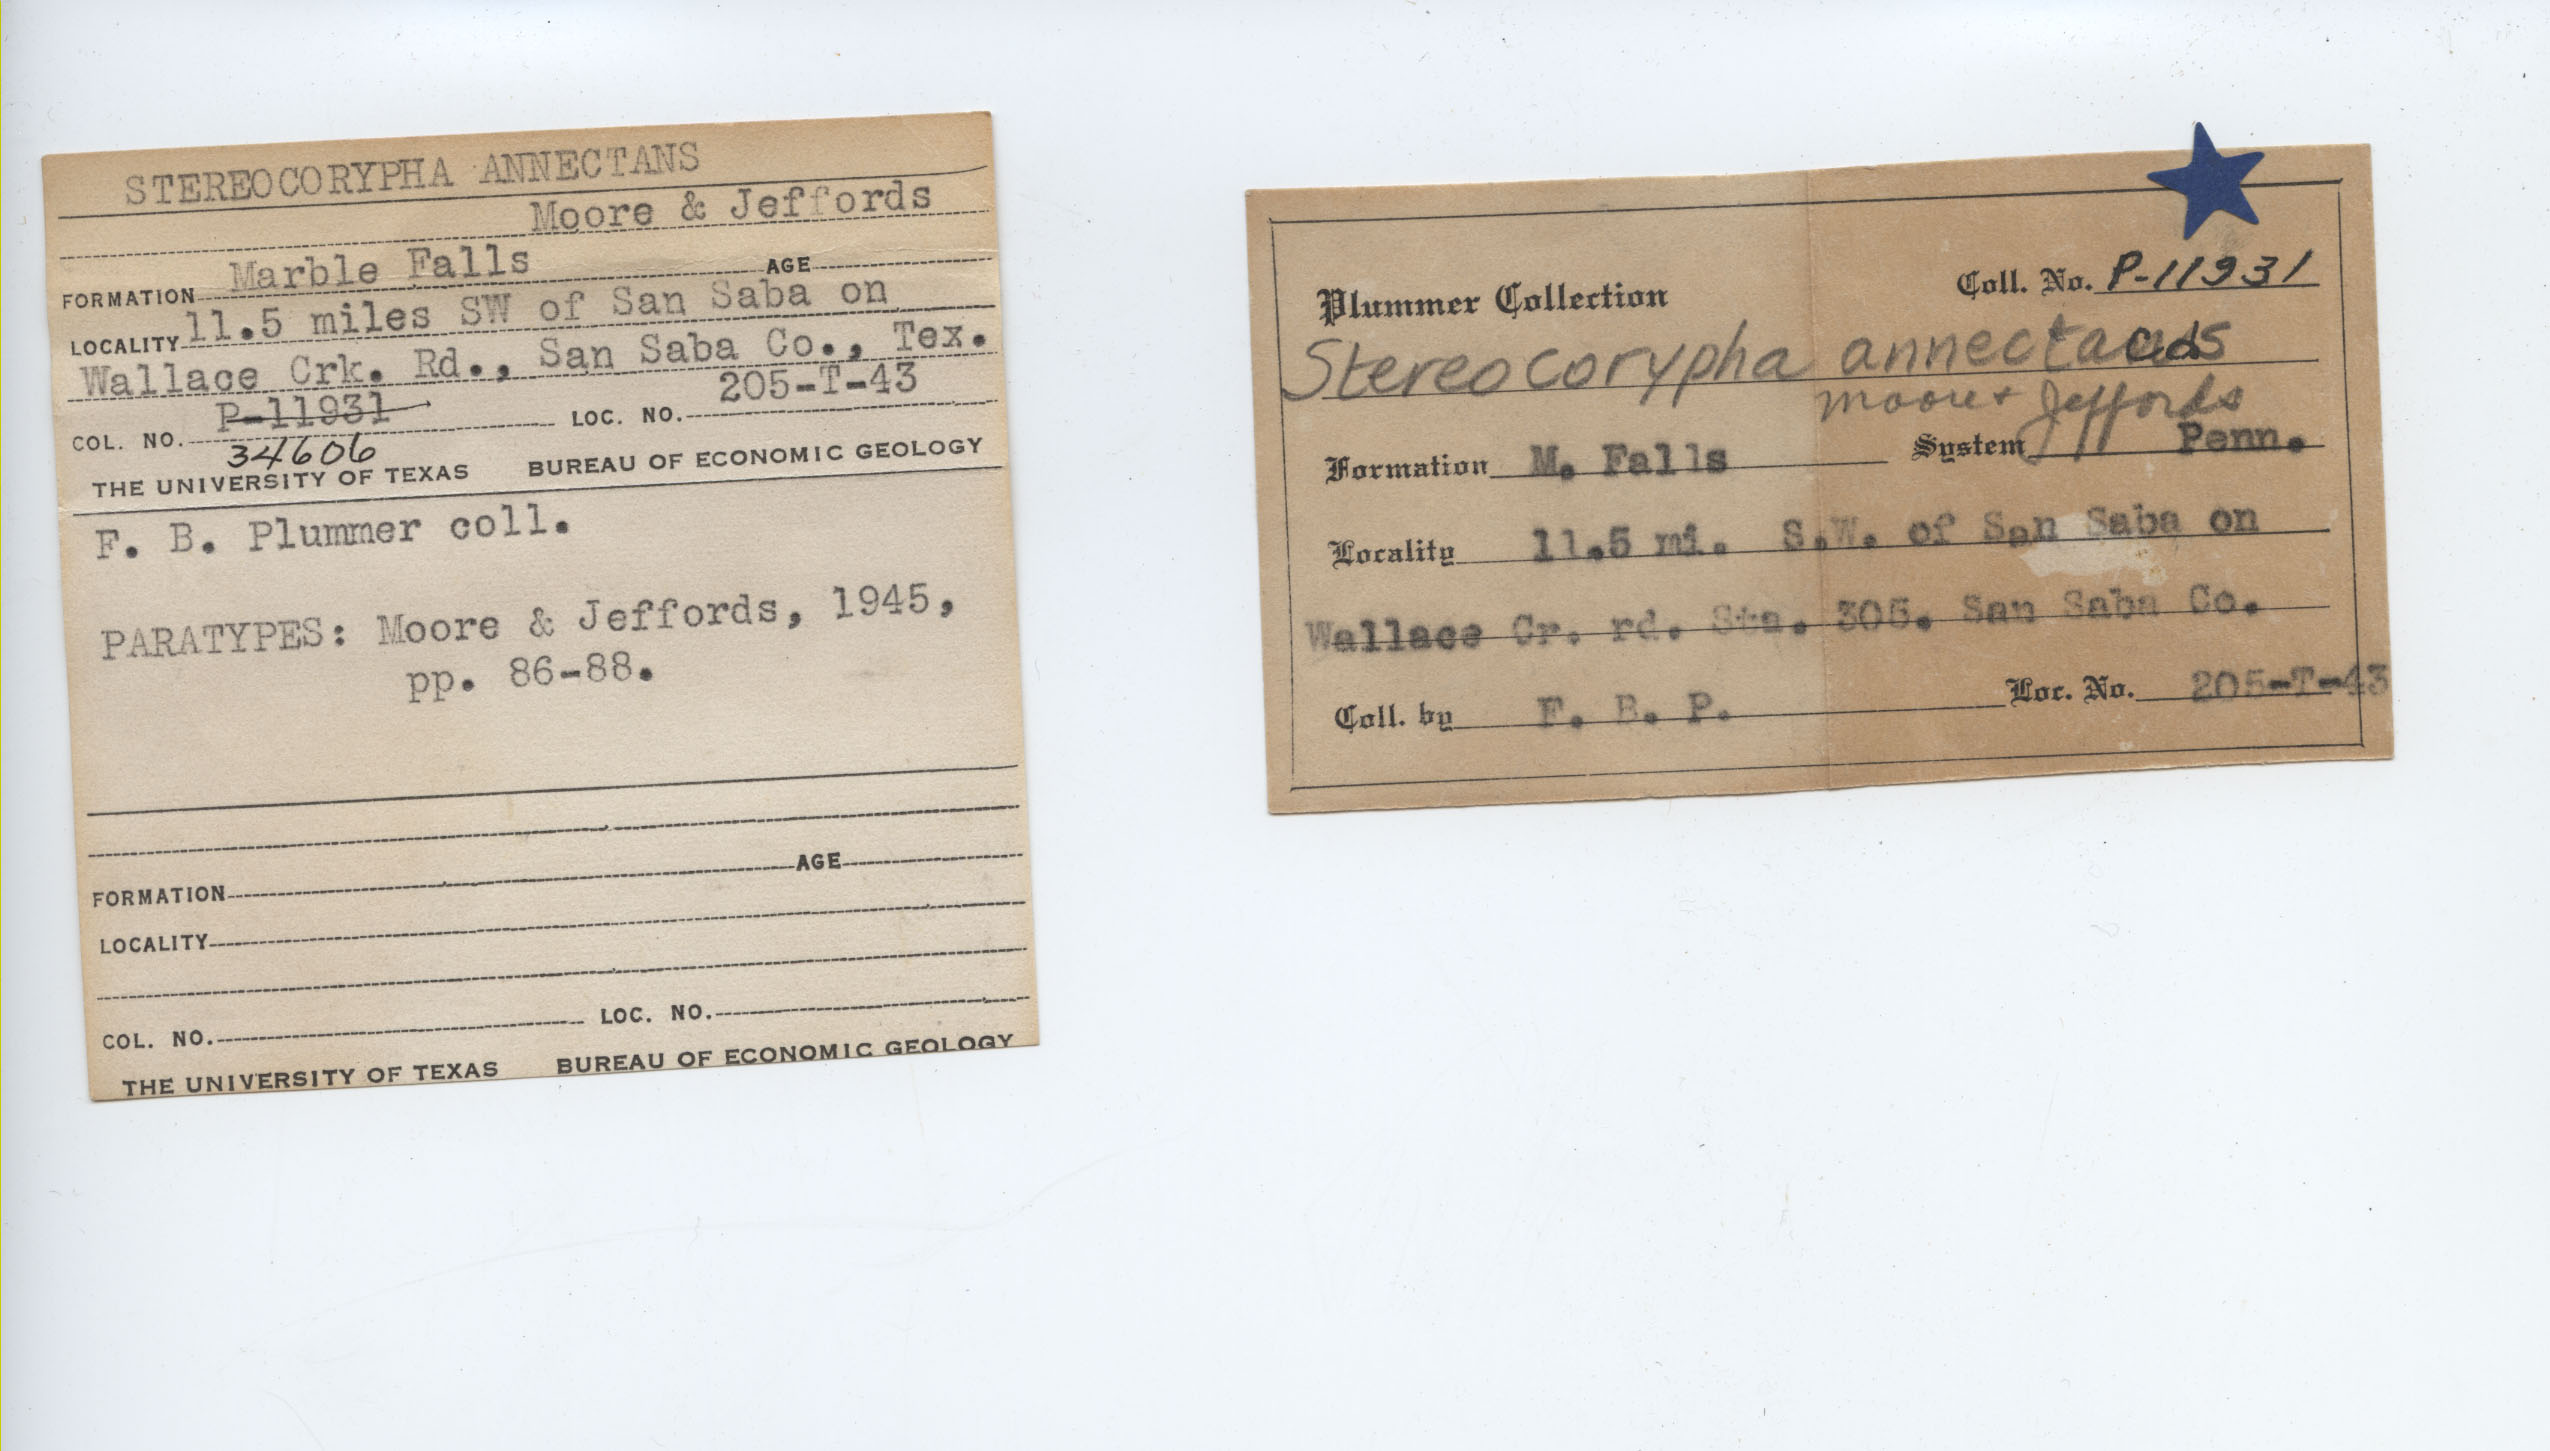 STEREOCORYPHA ANNECTANS
Moore & Jeffords
FORMATION Marble Falls AGE
LOCALITY 11.5 miles SW of San Saba on
Wallace Crk. Rd., San Saba Co., Tex.
COL. NO. P-11931 LOC. NO. 205-T-43
34606
THE UNIVERSITY OF TEXAS BUREAU OF ECONOMIC GEOLOGY
F. B. Plummer coll.
PARATYPES: Moore & Jeffords, 1945,
pp. 86-88.
FORMATION AGE
LOCALITY
COL. NO. LOC. NO.
THE UNIVERSITY OF TEXAS BUREAU OF ECONOMIC GEOLOGY
Plummer Collection Coll. No. P-11931
Stereocorypha
Moore + Jeffords
Formation M. Falls System Penn.
Locality 11.5 mi. S.W. of San Saba on
Wallace Cr. rd. Sta. 305. San Saba Co.
Coll. by F. B. P. Loc. No. 205-T-43